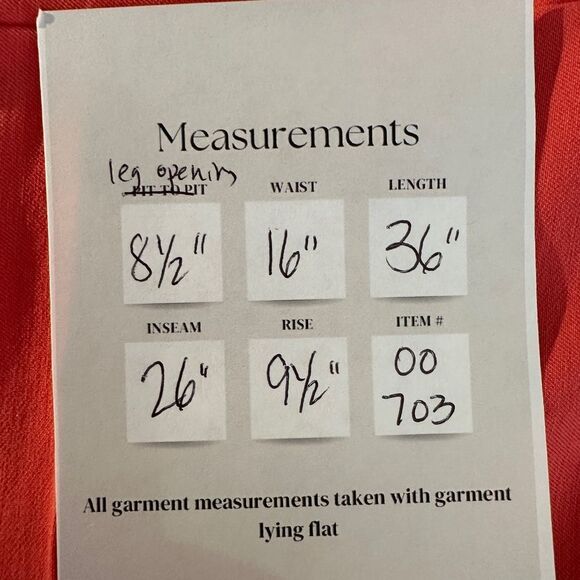 Measurements
leg opening
PIT TO PIT
WAIST
LENGTH
8½"
16"
36"
INSEAM
RISE
ITEM #
26"
9½"
00
703
All garment measurements taken with garment
lying flat